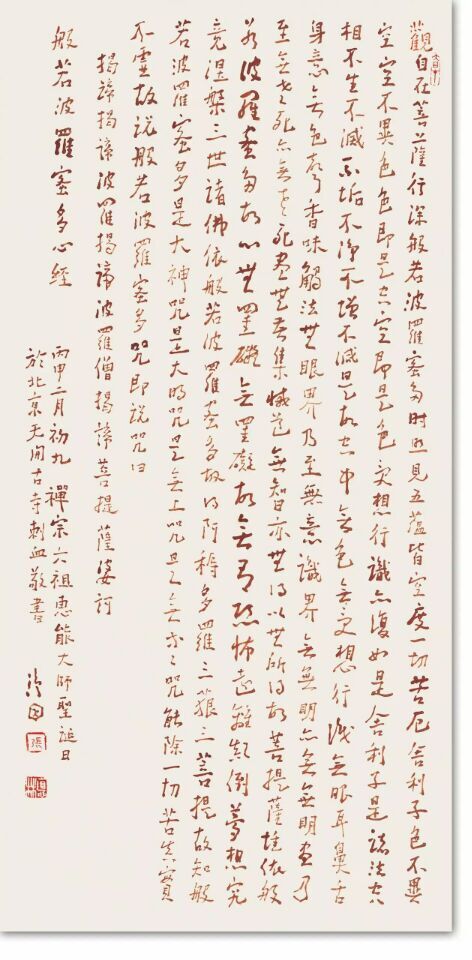 觀自在菩薩行深般若波羅蜜多時照見五蘊皆空度一切苦厄舍利子色不異
空空不異色色即是空空即是色受想行識亦復如是舍利子是諸法空
相不生不滅不垢不淨不增不減是故空中無色無受想行識無眼耳鼻舌
身意無色聲香味觸法無眼界乃至無意識界無無明亦無無明盡乃
至無老死亦無老死盡無苦集滅道無智亦無得以無所得故菩提薩埵依般
若波羅蜜多故心無罣礙無罣礙故無有恐怖遠離顛倒夢想究
竟涅槃三世諸佛依般若波羅蜜多故得阿耨多羅三藐三菩提故知般
若波羅蜜多是大神咒是大明咒是無上咒是無等等咒能除一切苦真實
不虛故說般若波羅蜜多咒即說咒曰
揭諦揭諦波羅揭諦波羅僧揭諦菩提薩婆訶
般若波羅蜜多心經
丙申二月初九 禪宗六祖惠能大師聖誕日
於北京天開古寺刺血敬書
張